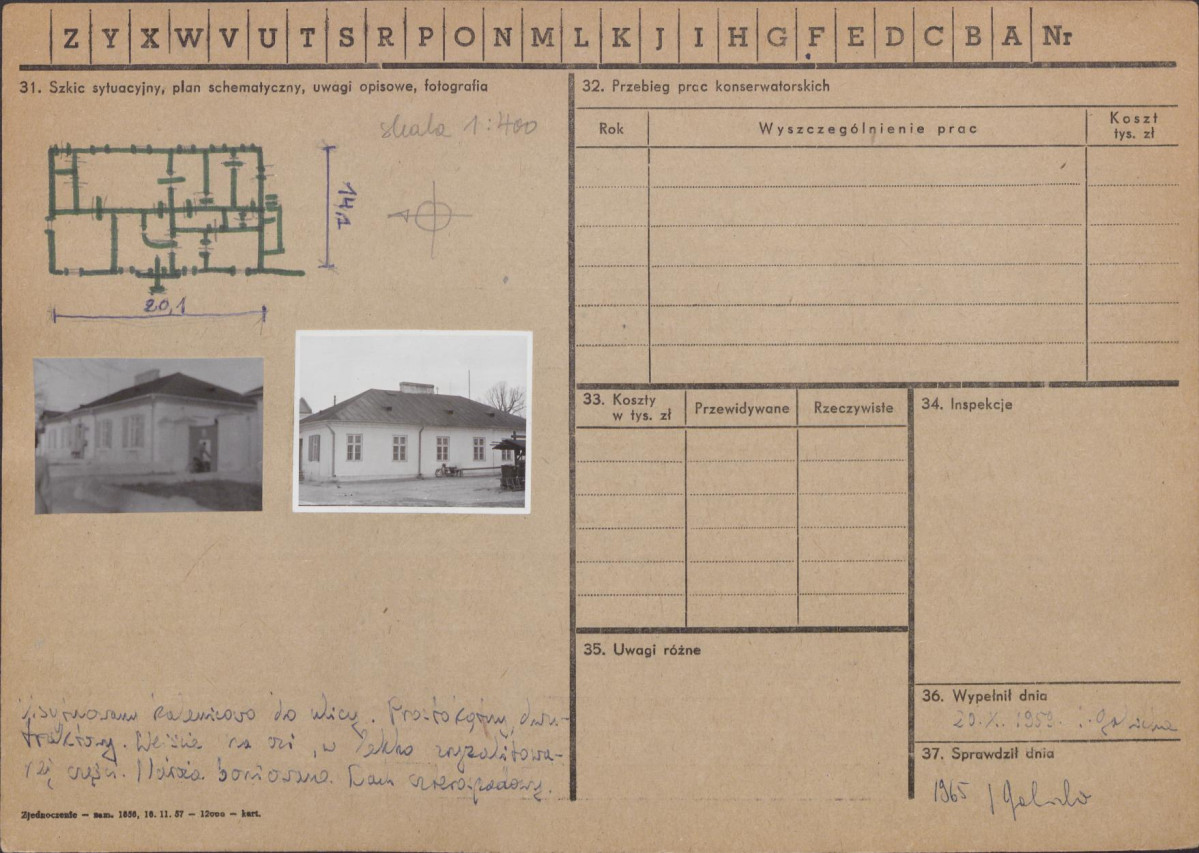 Z Y X W V U T S R P O N M L K J I H G F E D C B A Nr
31. Szkic sytuacyjny, plan schematyczny, uwagi opisowe, fotografia
skala 1:400
14,1
20,1
Usytuowany kalenicowo do ulicy. Prostokątny, dwu-
traktowy. Wejście na osi, w lekko zryzalitowa-
nej części. Naroża boniowane. Dach czterospadowy.
Zjednoczenie — zam. 1656, 16. 11. 57 — 12000 — kart.
32. Przebieg prac konserwatorskich
Rok
Wyszczególnienie prac
Koszt
tys. zł
33. Koszty
w tys. zł
Przewidywane
Rzeczywiste
34. Inspekcje
35. Uwagi różne
36. Wypełnił dnia
20.X.1959.
37. Sprawdził dnia
1965